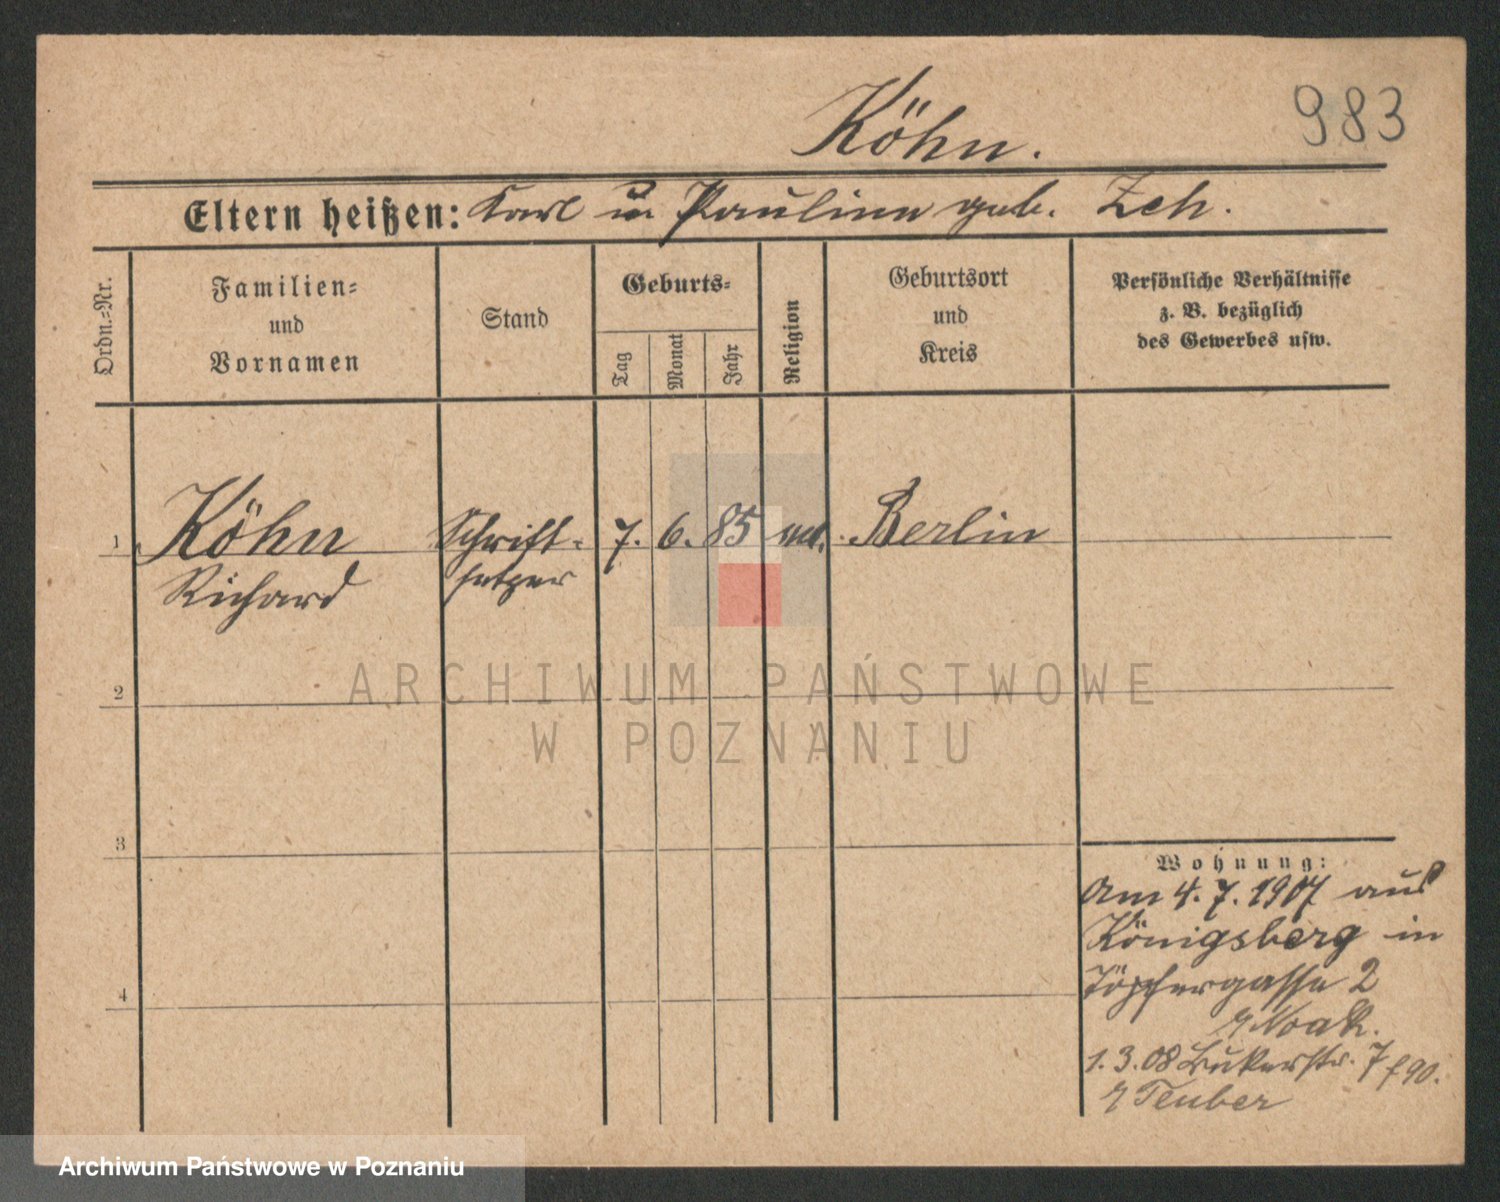 983
Köhn.
Eltern heißen: Karl u. Pauline geb. Zeh.
Ordn.-Nr.
Familien-
und
Vornamen
Stand
Geburts-
Tag
Monat
Jahr
Religion
Geburtsort
und
Kreis
Persönliche Verhältnisse
z. B. bezüglich
des Gewerbes usw.
1 Köhn Schrift- 7. 6. 85 Berlin
Richard setzer
2
ARCHIWUM PAŃSTWOWE
W POZNANIU
3
4
Wohnung:
Am 4. 7. 1907 aus
Königsberg in
Töpfergasse 2
Noak.
1. 3. 08 7
Teuber
Archiwum Państwowe w Poznaniu